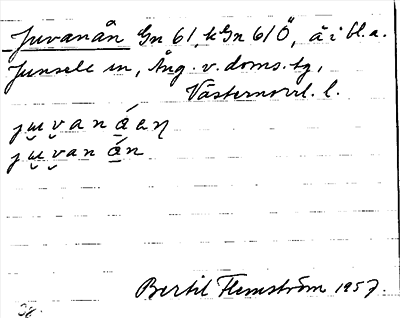 Juvanån Gn 61, kGn 61 Ö, å i bl.a.
Junsele sn, Ång. v. doms. tg,
Västernorrl. l.
juvanáan
juvan án
Bertil Flemström 1957.